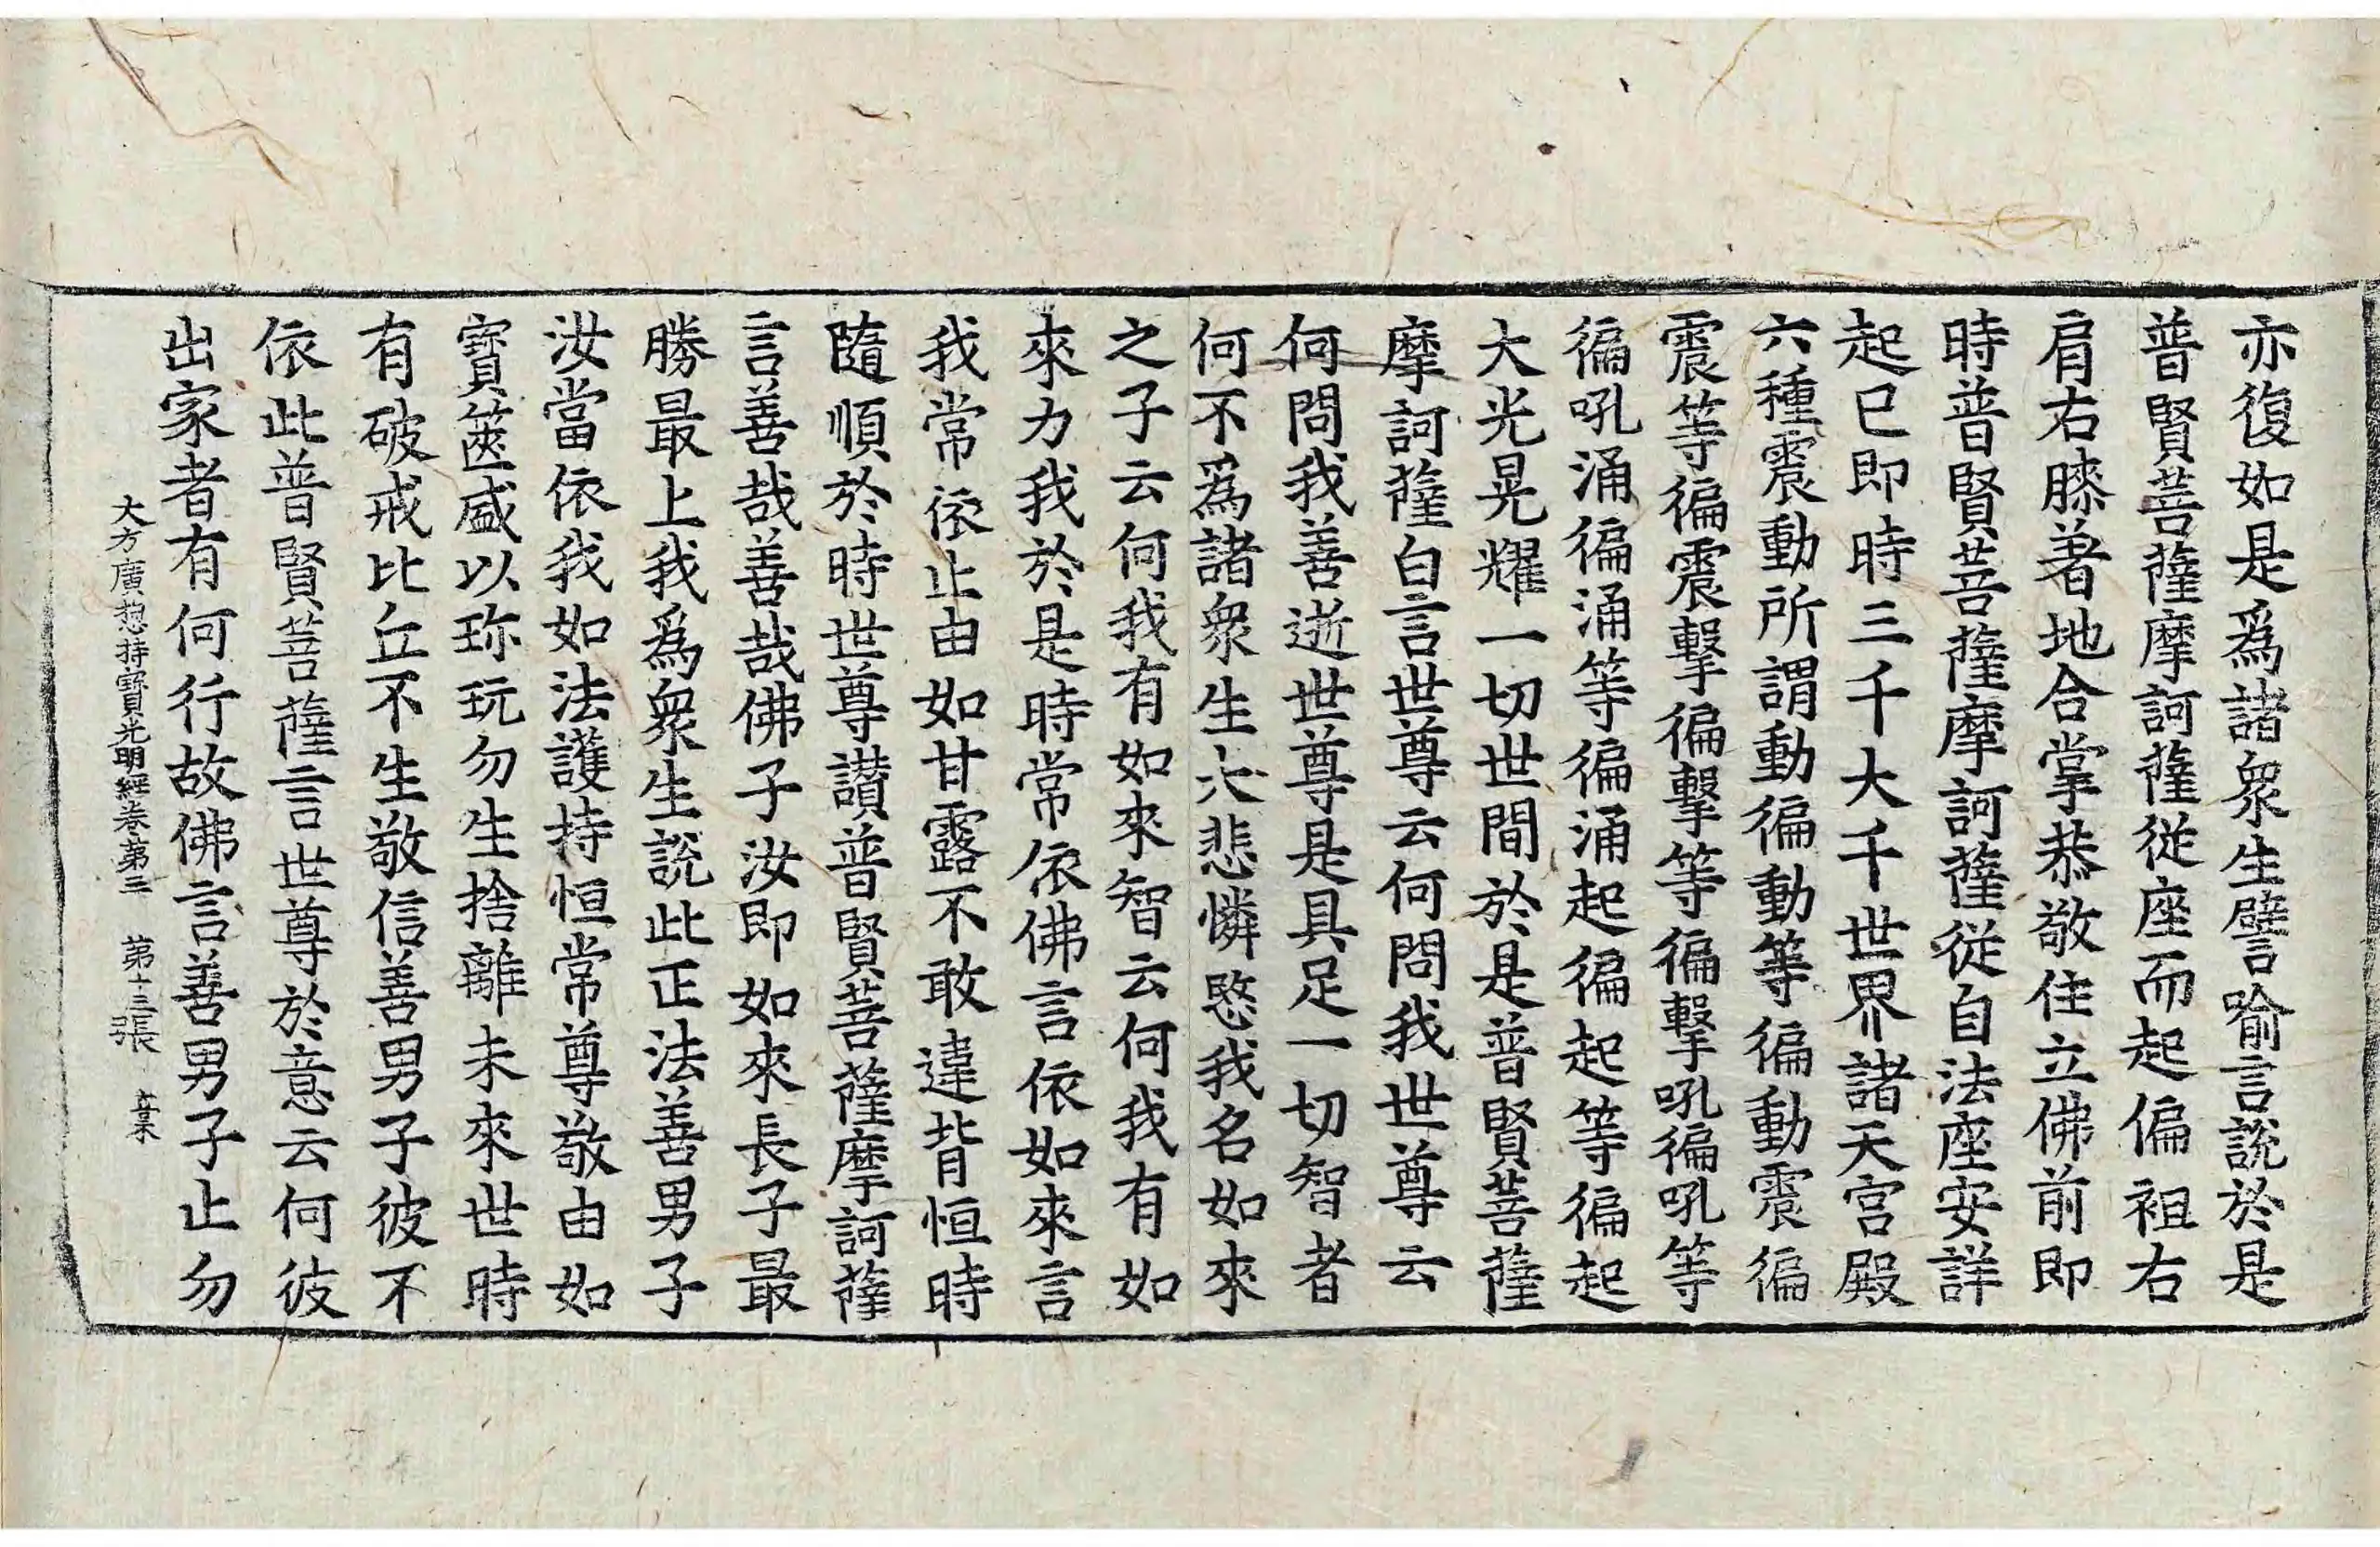 亦復如是爲諸衆生譬喻言說於是
普賢菩薩摩訶薩從座而起偏袒右
肩右膝著地合掌恭敬住立佛前即
時普賢菩薩摩訶薩從自法座安詳
起已即時三千大千世界諸天宮殿
六種震動所謂動徧動等徧動震徧
震等徧震擊徧擊等徧擊吼徧吼等
徧吼涌徧涌等徧涌起徧起等徧起
大光晃耀一切世間於是普賢菩薩
摩訶薩白言世尊云何問我世尊云
何問我善逝世尊是具足一切智者
何不爲諸衆生大悲憐愍我名如來
之子云何我有如來智云何我有如
來力我於是時常依佛言依如來言
我常依止由如甘露不敢違背恒時
隨順於時世尊讃普賢菩薩摩訶薩
言善哉善哉佛子汝即如來長子最
勝最上我爲衆生說此正法善男子
汝當依我如法護持恒常尊敬由如
寶篋盛以珎玩勿生捨離未來世時
有破戒比丘不生敬信善男子彼不
依此普賢菩薩言世尊於意云何彼
出家者有何行故佛言善男子止勿
大方廣揔持寶光明經卷第三 第十三張